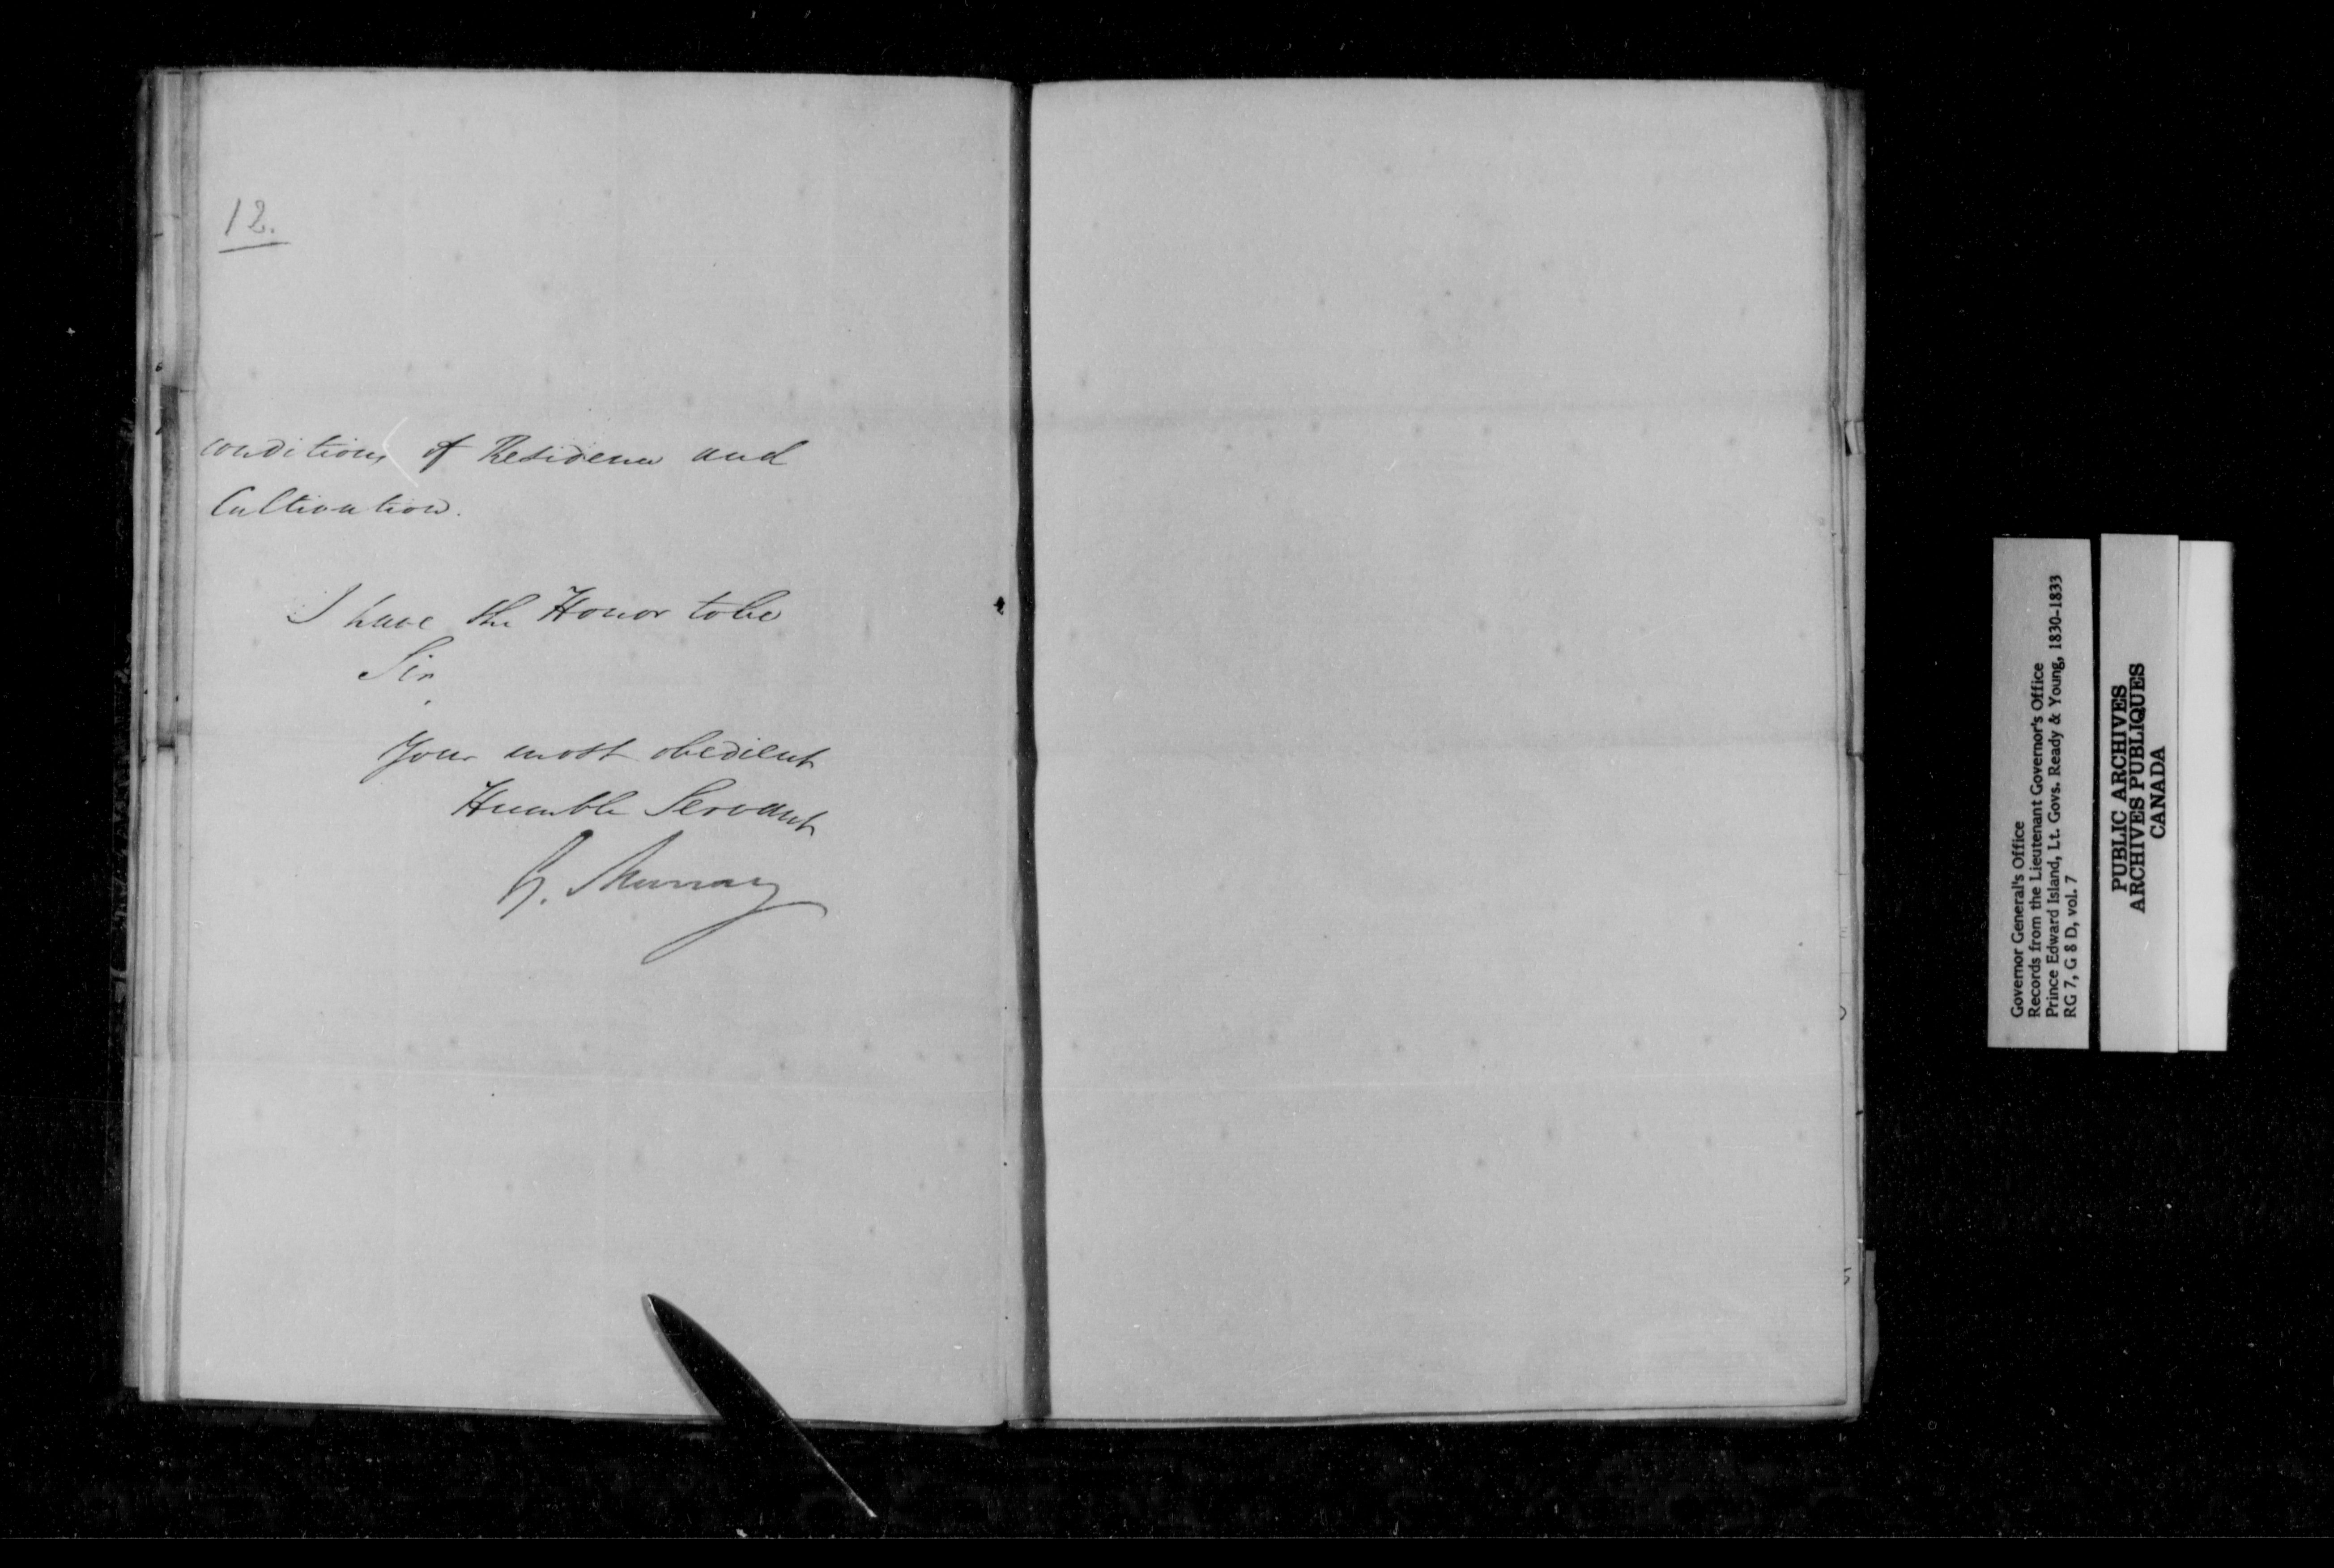 12.
conditions of Residence and
Cultivation.
I have the Honor to be
Sir
Your most obedient
Humble Servant
G. Murray
Governor General's Office
Records from the Lieutenant Governor's Office
Prince Edward Island, Lt. Govs. Ready & Young, 1830-1833
RG 7, G 8 D, vol. 7
PUBLIC ARCHIVES
ARCHIVES PUBLIQUES
CANADA